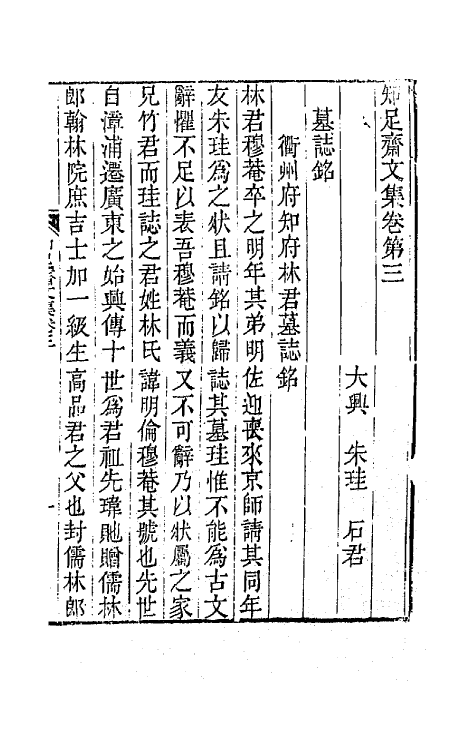 知足齋文集卷第三
大興 朱珪 石君
墓誌銘
衢州府知府林君墓誌銘
林君穆菴卒之明年其弟明佐迎喪來京師請其同年
友朱珪爲之狀且請銘以歸誌其墓珪惟不能爲古文
辭懼不足以表吾穆菴而義又不可辭乃以狀屬之家
兄竹君而珪誌之君姓林氏諱明倫穆菴其號也先世
自漳浦遷廣東之始興傳十世爲君祖先瑋貤贈儒林
郎翰林院庶吉士加一級生高品君之父也封儒林郎
一